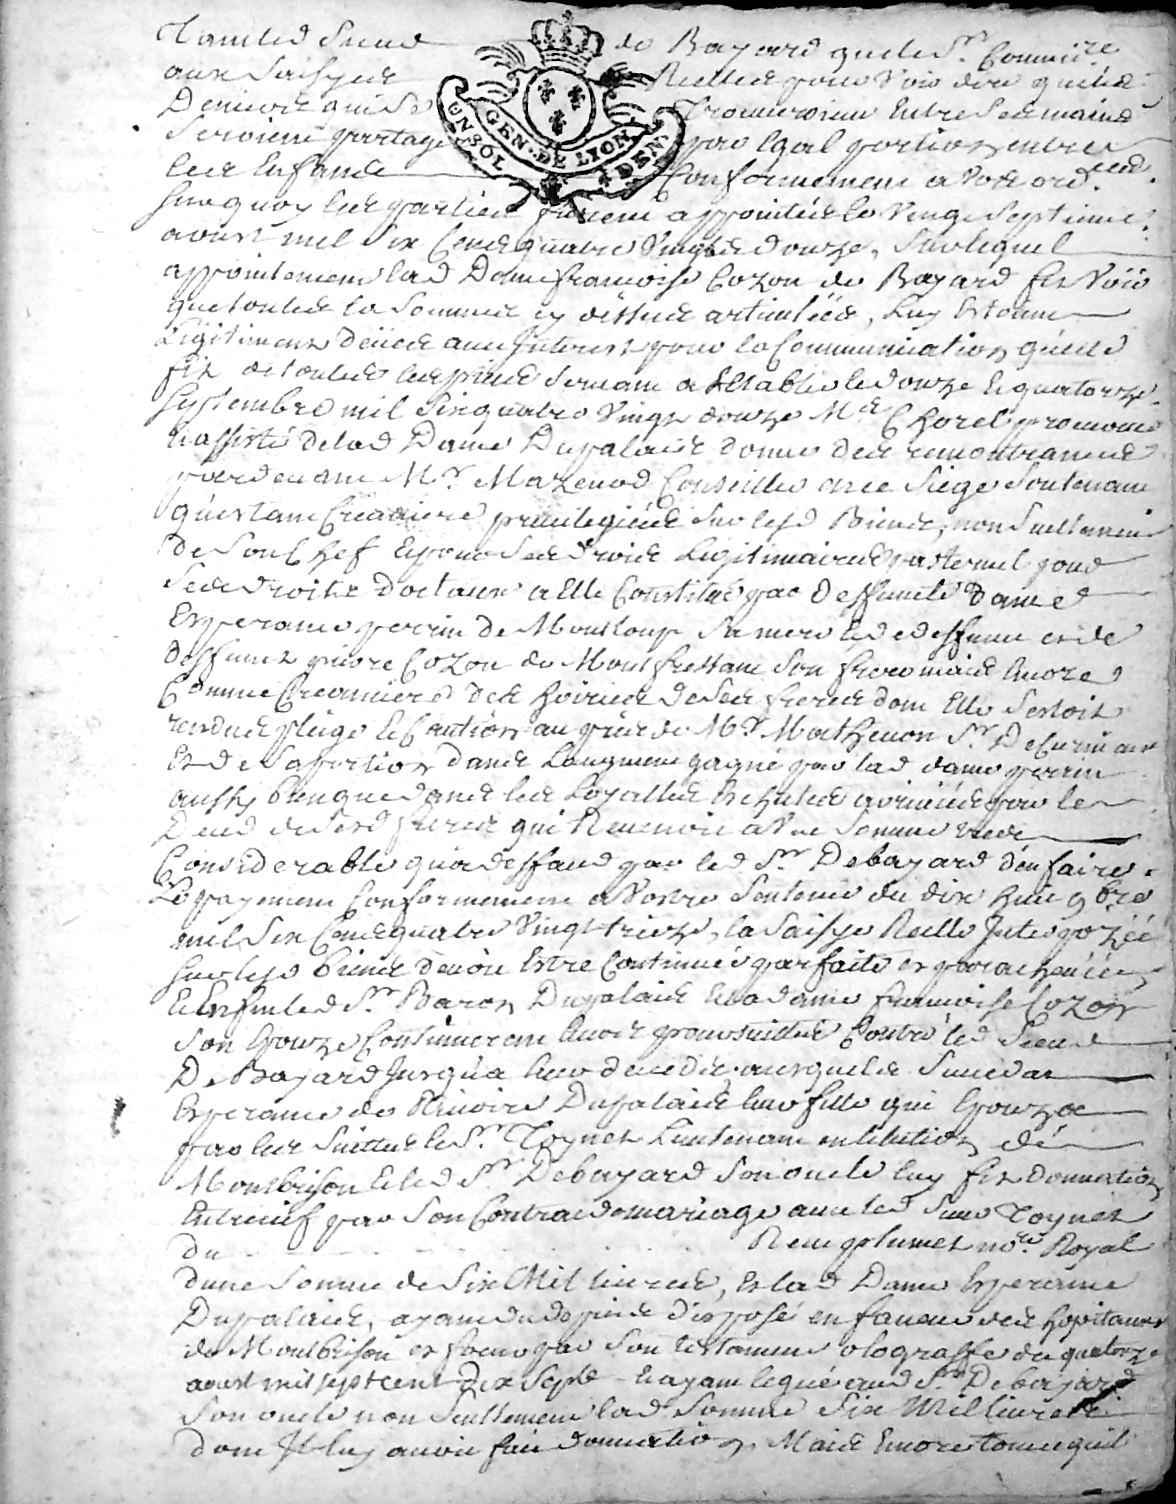 Tant led Sieur de Bayard que le Sr. Commire
aux Saisyes Reelles pour Voir dire que les
Deniers qui se Trouveroient Entre Ses mains
Seroient partagé par Egal portion entre
les Enfans Conformement a Votre ord.
GEN. DE LION
UN SOL DEN
Sur quoy les parties furent appointées le Vingt Septieme
aoust mil Six Cent quatre Vingts douze, Sur lequel
appointement lad Dame francoise Cozon de Bayard fit Voir
que toutes la Sommes cy dessus articulées, Luy Estoient
Legitimement deües avec Interest pour la Communication qu'elle
fit de toutes les pieces Servant a Establir le douze Et quatorze
Septembre mil Six quatre Vingt douze Me Chorel procureur
Et assisté de lad Dame Dupalais donna des remontrances
pardevant Mr Mazenod Conseiller en ce Siege Soutenant
qu'estant Creanciere privilegiée Sur lesd Biens, non Seullement
de Son Chef Et pour Ses droits Legitimaires paternel pour
Ses droits doctaux a Elle Constitué par deffuncte dame
Esperance perrin de Montloup Sa mere et deffunct
deffunct pierre Cozon de Mont Son frere mais Encore
Comme Creanciere des hoiries de Ses freres dont Elle Sestoit
rendue pleige Et Caution au prix de Mr Mathevon Sr De Curni
Et de Sa portion dans Laugment gagné par lad dame perrin
aussy bien que dans les Loyalles Echutes arrivées par le
Deces de Sesd freres qui Revenoit a Une Somme tres
Considerable qu'a deffaud par led Sr Debayard d'en faire
Le payement Conformement a Vostre Sentence du dix huit 9bre
mil Six Cent quatre Vingt treize, la Saisye Reelle Interpozéé
Sur lesd biens devoir Estre Continuée parfaite et parachevéé
Et Enfin led Sr Baron Dupalais Et la dame francoise Cozon
Son Epouze Continuerent Leurs poursuittes Contre led Sieur
De Bayard Jusqu'a leur decedés auxquels Succeda
Esperance de Rivoire Dupalais leur fille qui Epouza
par les Suittes le Sr. Toynet Lieutenant en Election de
Montbrison Et led Sr Debayard Son oncle luy fit donnation
Entrevif par Son Contrat de mariage avec led Sieur Toynet
du Reçu plumet nore Royal
dune Somme de Six Mil livres, Et lad Dame Esperance
Dupalais, ayant du depuis disposé en faveur des hopitaux
de Montbrison et feurs par Son testament olograffe du quatorze
aoust mil sept cent dix Sept Et ayant legué aud Sr Debayard
Son oncle non Seullement lad Somme Six Mil livres
dont Il luy avoit fait donnation, Mais Encore tout ce quil